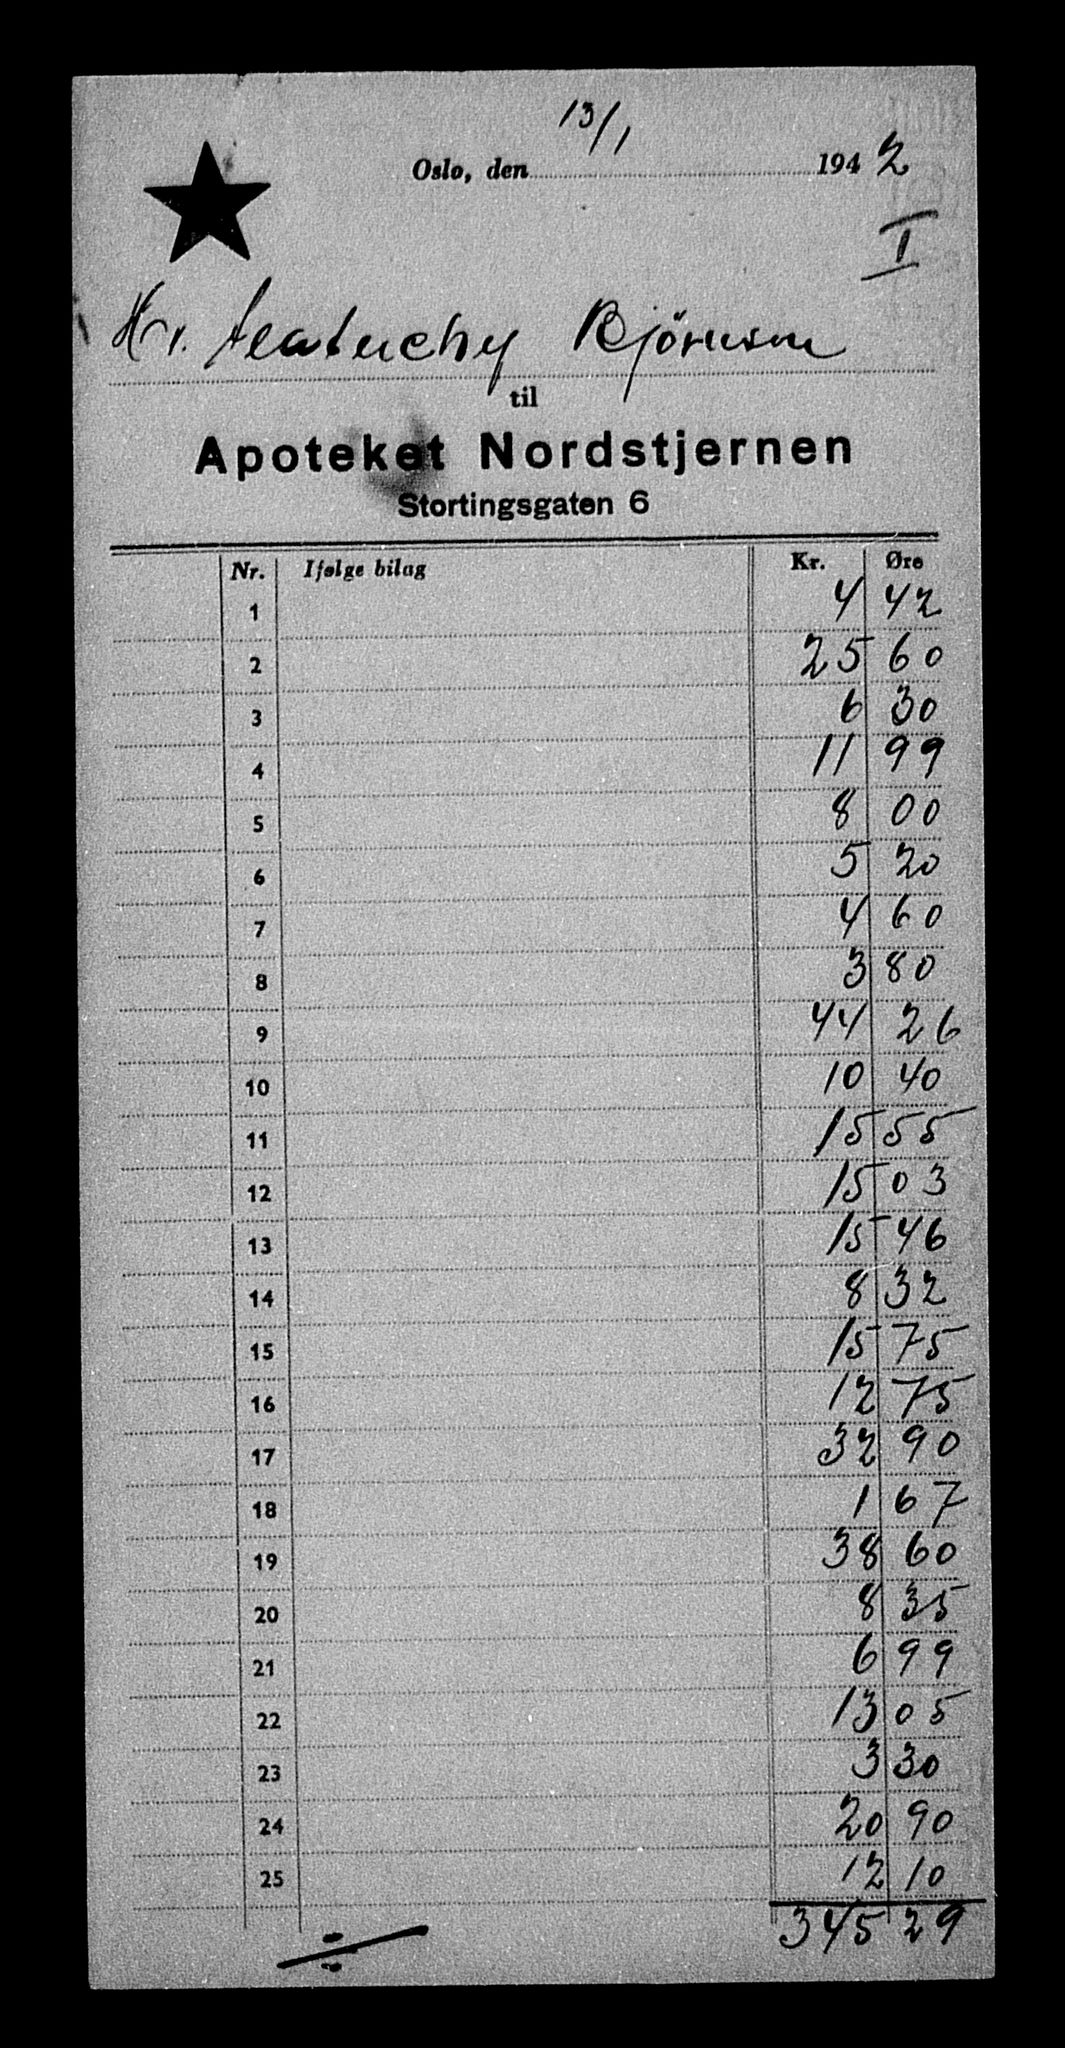 13/1
Oslo, den 194 2
I
Hr. Bjørnson
til
Apoteket Nordstjernen
Stortingsgaten 6
Nr. Ifølge bilag Kr. Øre
1 4 42
2 25 60
3 6 30
4 11 99
5 8 00
6 5 20
7 4 60
8 3 80
9 44 26
10 10 40
11 15 55
12 15 03
13 15 46
14 8 32
15 15 75
16 12 75
17 32 90
18 1 67
19 38 60
20 8 35
21 6 99
22 13 05
23 3 30
24 20 90
25 12 10
345 29